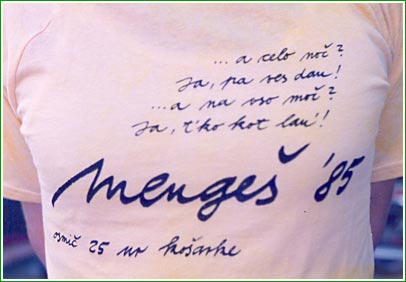 ... a celo noč?
Ja, pa ves dan!
... a na vso moč?
Ja, t'ko kot lan'!
Mengeš '85
osmič 25 ur košarke